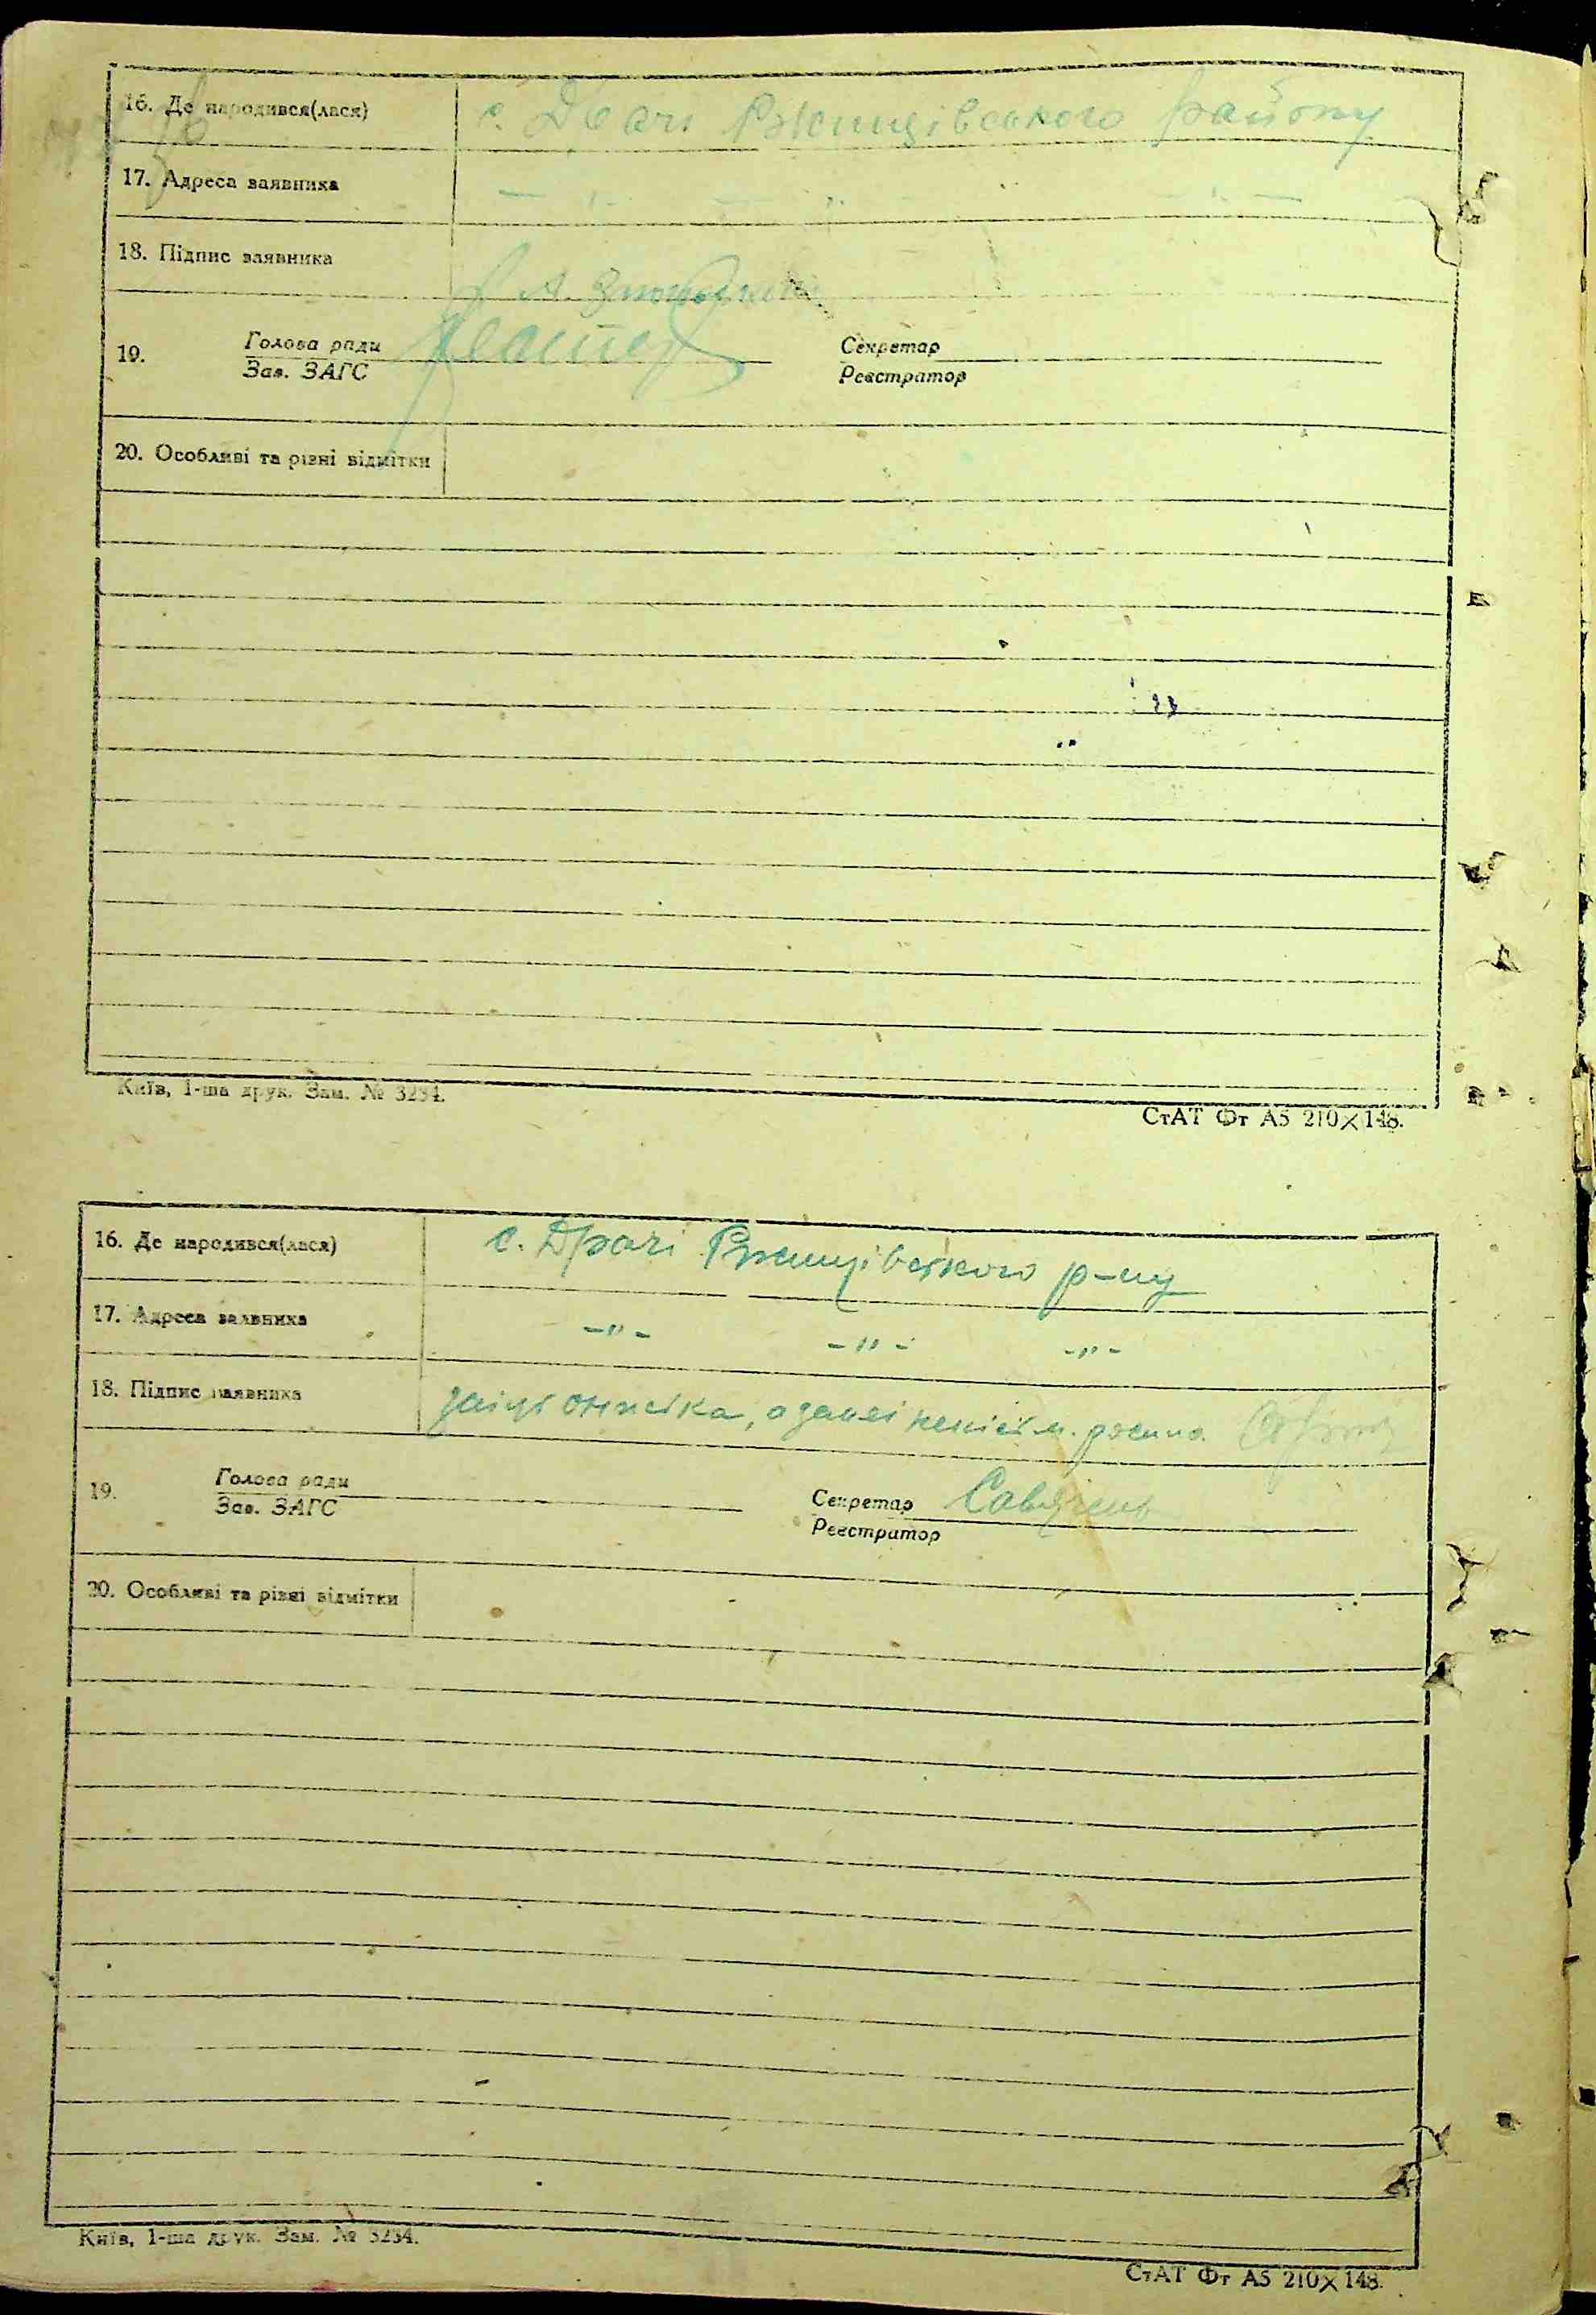 16. Де народився(лася) с. Драчі Ржищівського району
17. Адреса заявника — „ —
18. Підпис заявника А.
19. Голова ради Секретар
Зав. ЗАГС Реєстратор
20. Особливі та різні відмітки
Київ, 1-ша друк. Зам. № 3234.
СтАТ Фт А5 210×148.
16. Де народився(лася) с. Драчі Ржищівського р-ну
17. Адреса заявника —„— —„— —„—
18. Підпис заявника
19. Голова ради Секретар
Зав. ЗАГС Реєстратор
20. Особливі та різні відмітки
Київ, 1-ша друк. Зам. № 3234.
СтАТ Фт А5 210×148.